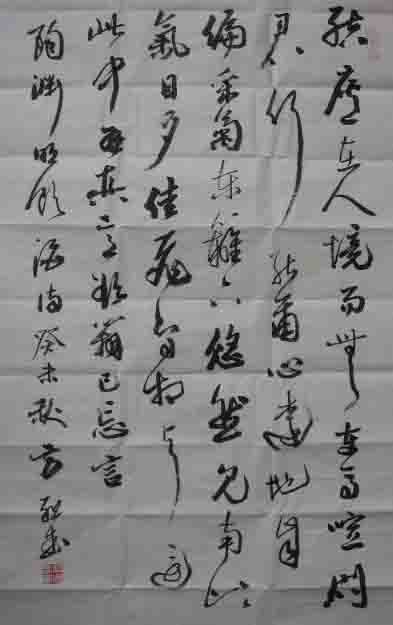 結廬在人境而無車馬喧問
君何能爾心遠地自
偏采菊東籬下悠然見南山
氣日夕佳飛鳥相与還
此中有真意欲辯已忘言
陶淵明飲酒詩癸未秋方書